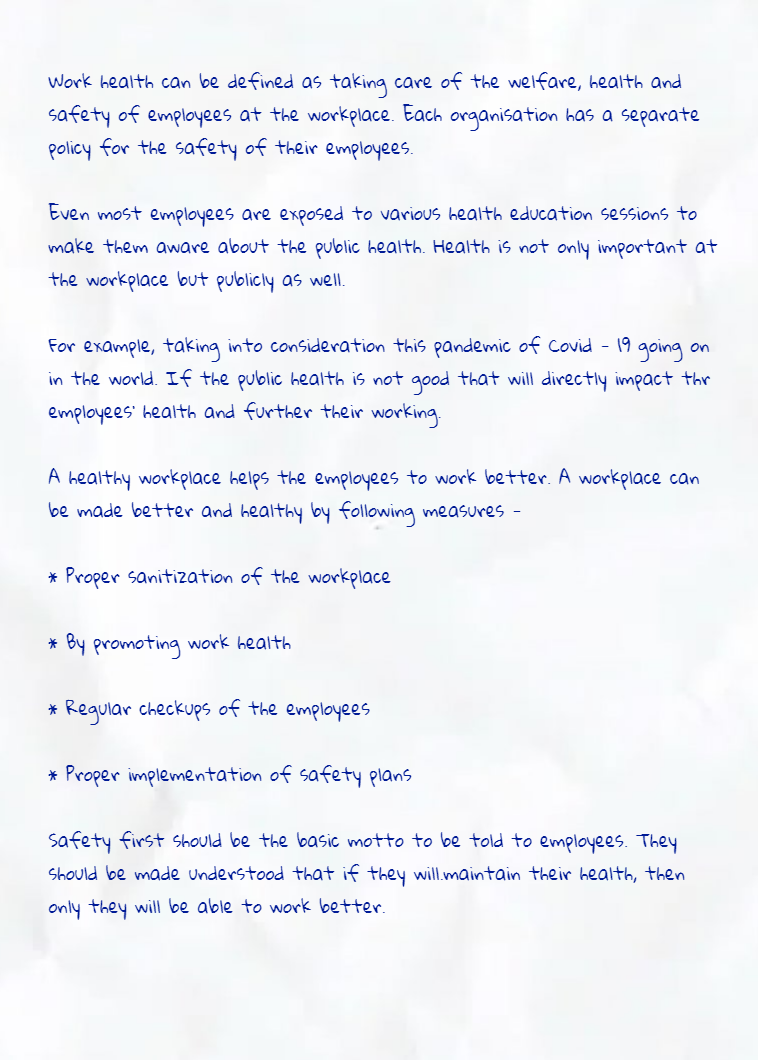 Work health can be defined as taking care of the welfare, health and
safety of employees at the workplace. Each organisation has a separate
policy for the safety of their employees.
Even most employees are exposed to various health education sessions to
make them aware about the public health. Health is not only important at
the workplace but publicly as well.
For example, taking into consideration this pandemic of Covid - 19 going on
in the world. If the public health is not good that will directly impact thr
employees' health and further their working.
A healthy workplace helps the employees to work better. A workplace can
be made better and healthy by following measures -
* Proper sanitization of the workplace
* By promoting work health
* Regular checkups of the employees
* Proper implementation of safety plans
Safety first should be the basic motto to be told to employees. They
should be made understood that if they will.maintain their health, then
only they will be able to work better.